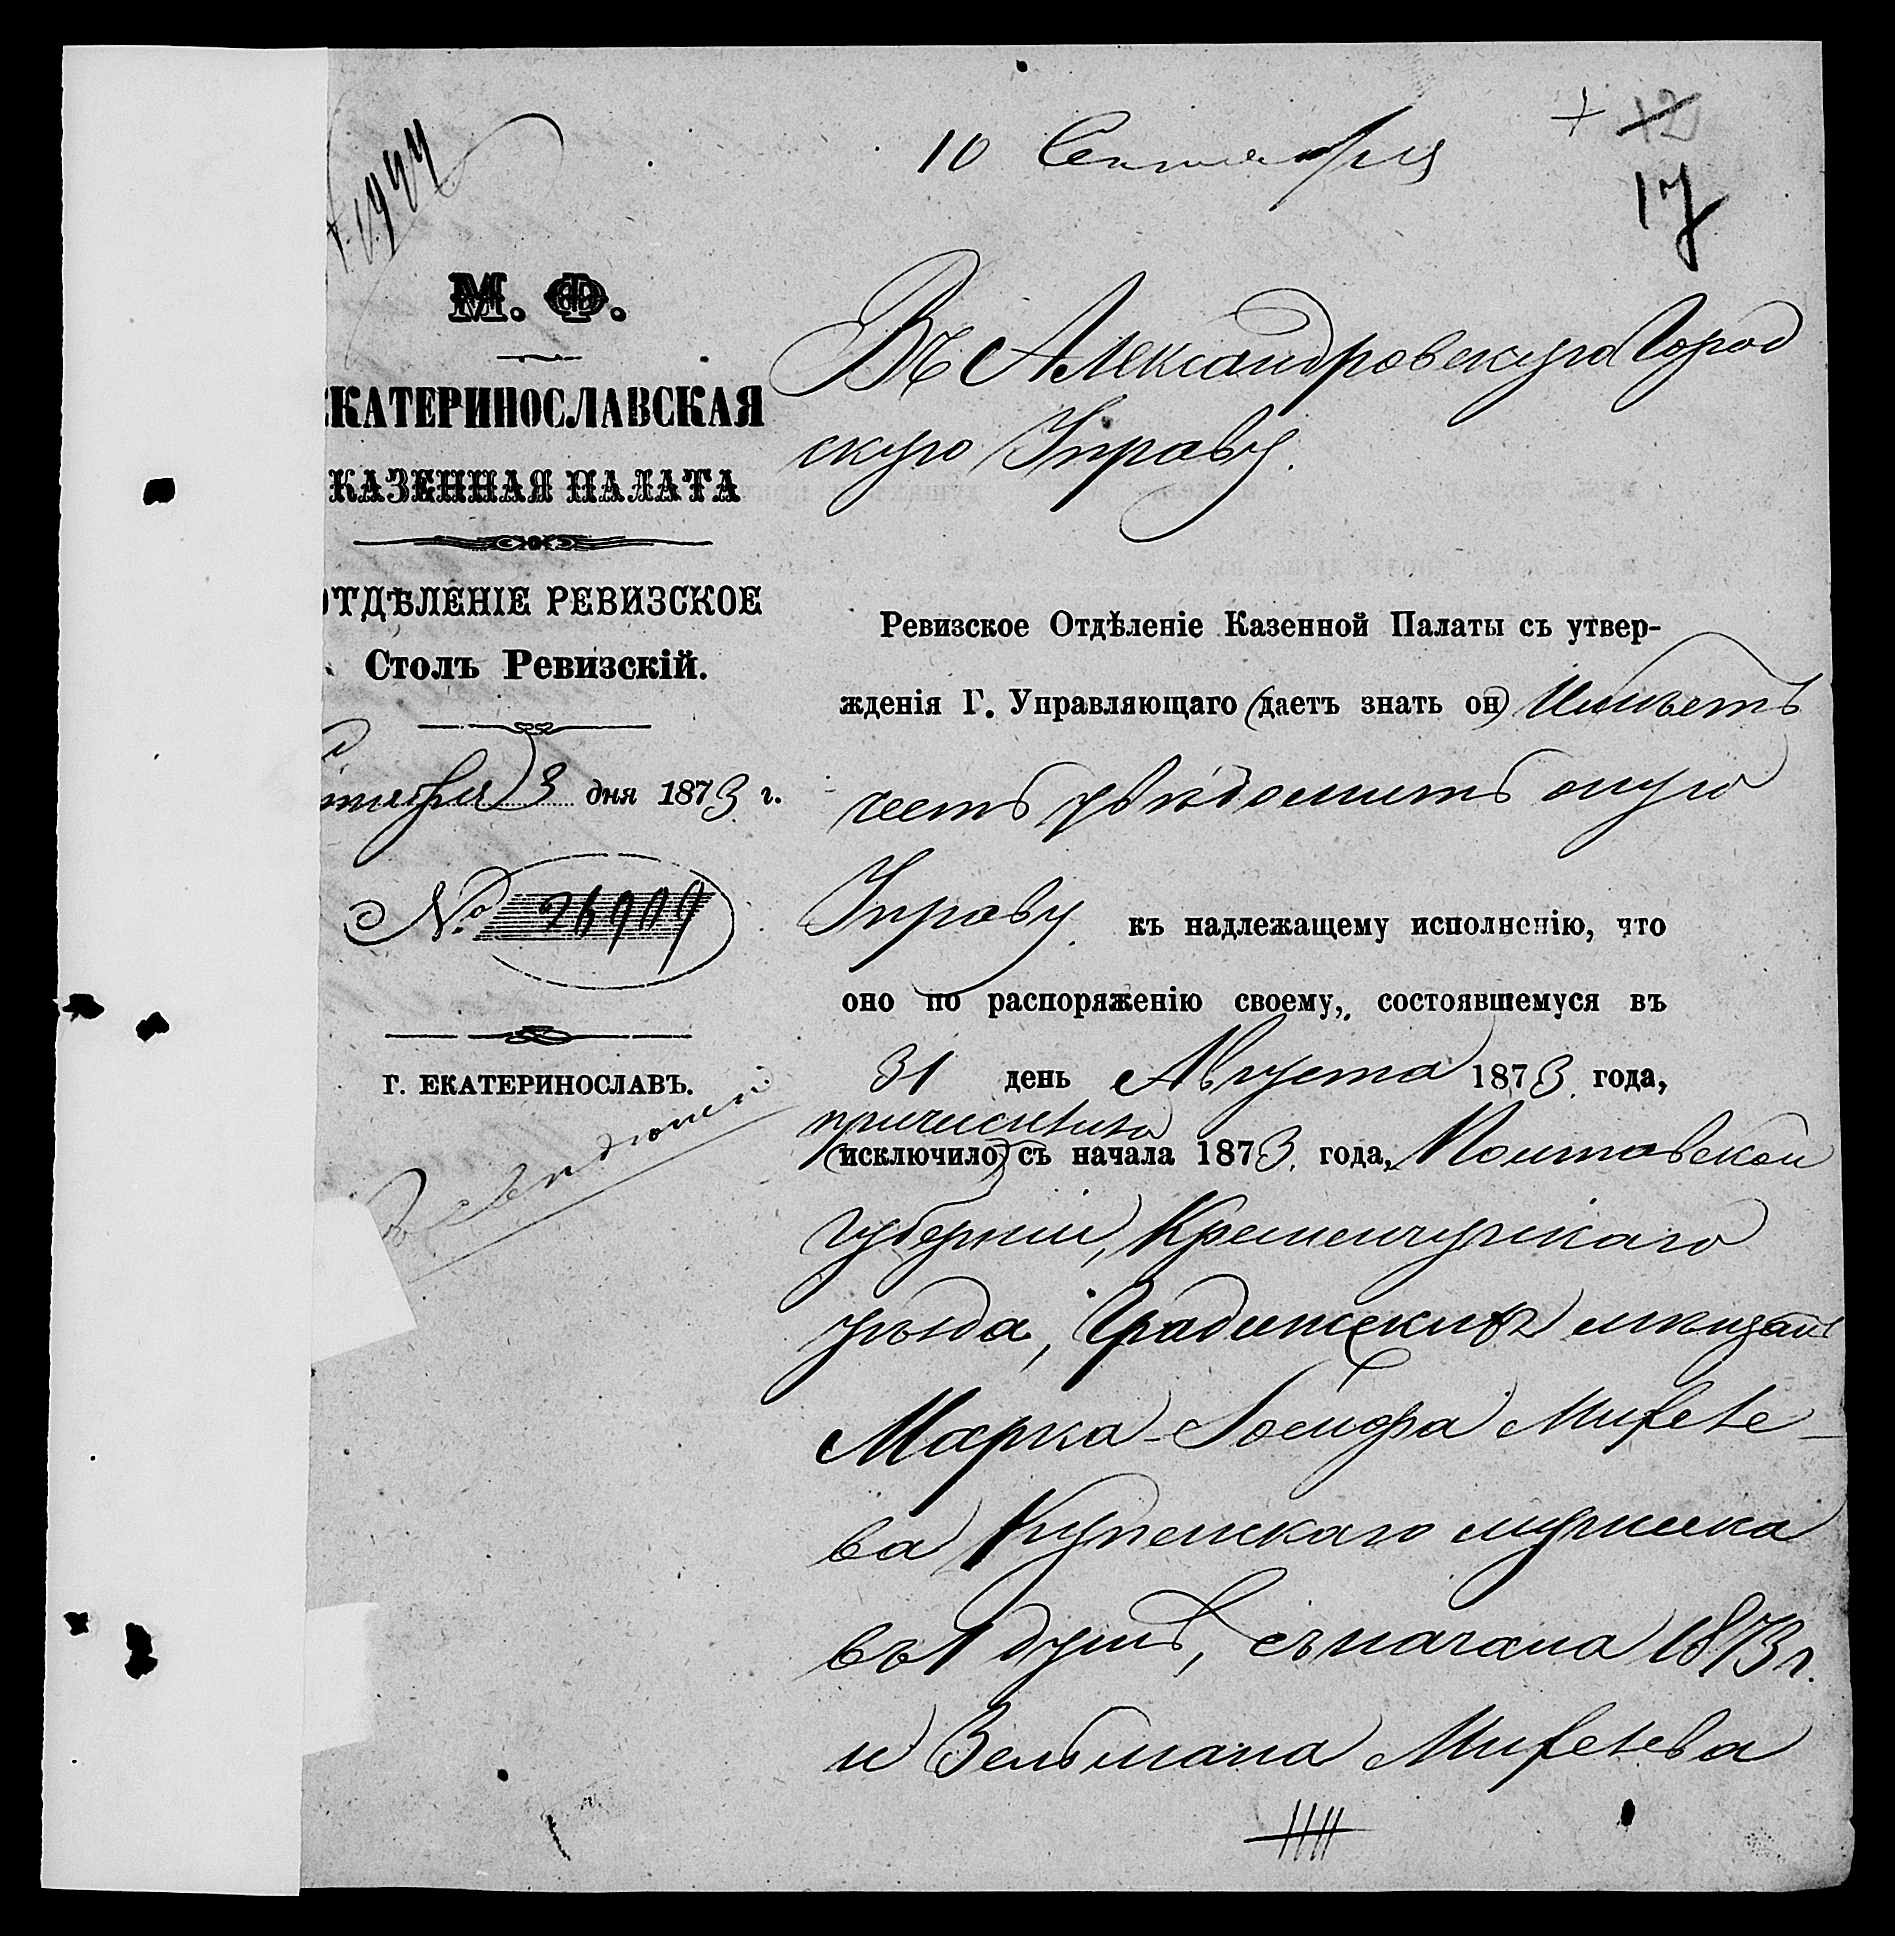 10 Сентября
+ 12
17
1944
М. Ф.
ЕКАТЕРИНОСЛАВСКАЯ
КАЗЕННАЯ ПАЛАТА
ОТДѢЛЕНІЕ РЕВИЗСКОЕ
Столъ Ревизскій.
Сентября 3 дня 1873 г.
№ 26909
Г. ЕКАТЕРИНОСЛАВЪ.
Въ Александровскую Город
скую Управу.
Ревизское Отдѣленіе Казенной Палаты съ утвер-
жденія Г. Управляющаго (даетъ знать он) Имѣетъ
честь увѣдомить оную
Управу къ надлежащему исполненію, что
оно по распоряженію своему, состоявшемуся въ
31 день Августа 1873 года,
причислило
(исключило) съ начала 1873 года, Полтавской
губерніи, Кременчугскаго
уѣзда, Градижскихъ мѣщанъ
Марка-Іосифа Михеле-
ва
въ 1 душѣ, съ начала 1873 г.
и Зельмана Михелева